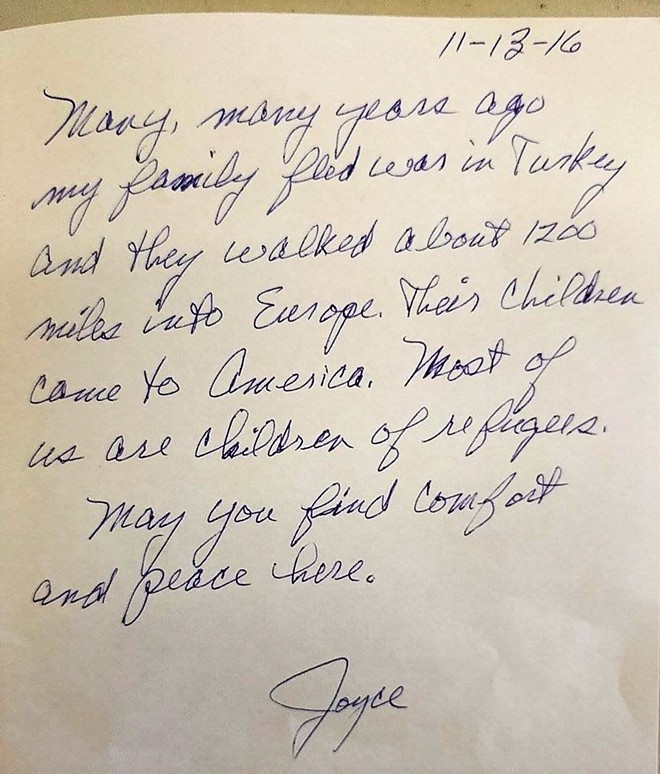 11-13-16
Many, many years ago
my family fled war in Turkey
and they walked about 1200
miles into Europe. Their children
came to America. Most of
us are children of refugees.
May you find comfort
and peace here.
Joyce